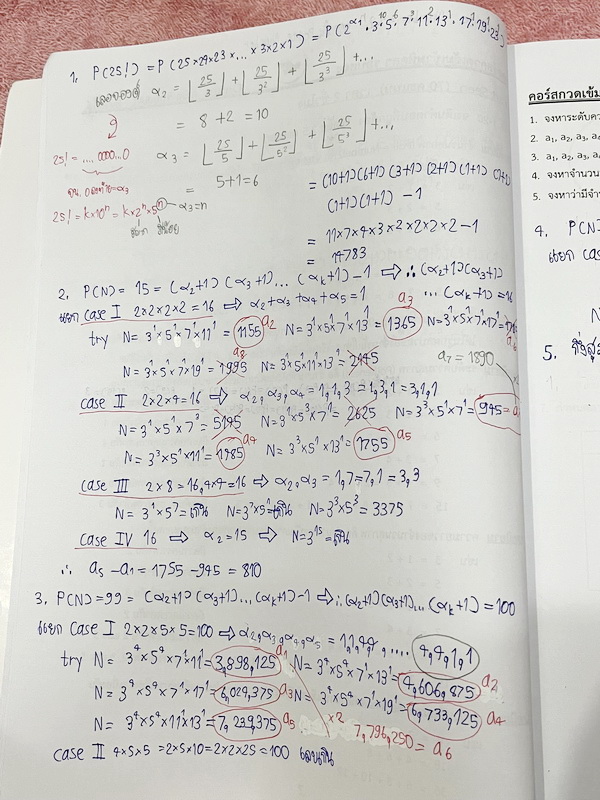 1. P(25!) = P(25×24×23×...×3×2×1) = P(2^α₁·3^10·5^6·7^3·11^2·13^1·17^1·19^1·23^1)
α₂ = ⌊25/3⌋ + ⌊25/3²⌋ + ⌊25/3³⌋ + ...
= 8 + 2 = 10
25! = .... 0000...0
α₃ = ⌊25/5⌋ + ⌊25/5²⌋ + ⌊25/5³⌋ + ...
= 5+1 = 6
α₃ = n
25! = k×10^n = k×2^n×5^n
= (10+1)(6+1)(3+1)(2+1)(1+1)(1+1)
(1+1)(1+1) - 1
= 11×7×4×3×2×2×2×2 - 1
= 14783
2. P(N) = 15 = (α₂+1)(α₃+1)...(αₖ+1) - 1 ⇒ ∴ (α₂+1)(α₃+1)
... (αₖ+1) = 16
แยก case I 2×2×2×2 = 16 ⇒ α₂+α₃+α₄+α₅ = 1
try N = 3^1×5^1×7^1×11^1 = 1155 a₂ N = 3^1×5^1×7^1×13^1 = 1365 a₃ N = 3^1×5^1×7^1×17^1 =
a₆
N = 3^1×5^1×7^1×19^1 = 1995 a₈ N = 3^1×5^1×11^1×13^1 = 2145 a₇ = 1890
case II 2×2×4 = 16 ⇒ α₂,α₃,α₄ = 1,1,3 = 1,3,1 = 3,1,1
N = 3^1×5^1×7^3 = 5145 N = 3^1×5^3×7^1 = 2625 N = 3^3×5^1×7^1 = 945 = a
N = 3^3×5^1×11^1 = 1485 a₄ N = 3^3×5^1×13^1 = 1755 a₅
case III 2×8 = 16, 4×4 = 16 ⇒ α₂,α₃ = 1,7 = 7,1 = 3,3
N = 3^1×5^7 = เกิน N = 3^7×5^1 = เกิน N = 3^3×5^3 = 3375
case IV 16 ⇒ α₂ = 15 ⇒ N = 3^15 = เกิน
∴ a₅ - a₁ = 1755 - 945 = 810
3. P(N) = 99 = (α₂+1)(α₃+1)...(αₖ+1) - 1 ⇒ ∴ (α₂+1)(α₃+1)...(αₖ+1) = 100
แยก case I 2×2×5×5 = 100 ⇒ α₂,α₃,α₄,α₅ = 1,1,4,4, .... 4,4,1,1
try N = 3^4×5^4×7^1×11^1 = 3,898,125 a₁ N = 3^4×5^4×7^1×13^1 = 4,606,875 a₂
N = 3^4×5^4×7^1×17^1 = 6,024,375 a₃ N = 3^4×5^4×7^1×19^1 = 6,733,125 a₄
N = 3^4×5^4×11^1×13^1 = 7,239,375 a₅ ×2 7,796,250 = a₆
case II 4×5×5 = 2×5×10 = 2×2×25 = 100 เลยเกิน
คอร์สกวดเข้ม
1. จงหาระดับคว
2. a₁, a₂, a₃, a
3. a₁, a₂, a₃, a
4. จงหาจำนวน
5. จงหาว่ามีจำ
4. P(N)
แยก cas
N
5.